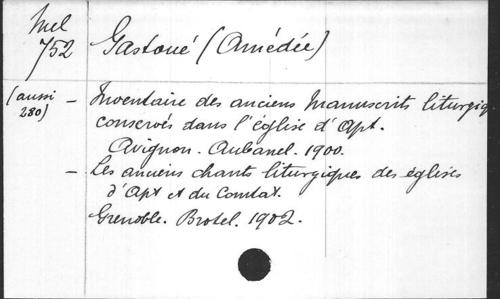 Mel
752
Gastoué (Amédée)
(aussi
280)
- Inventaire des anciens Manuscrits liturgiq
conservés dans l'église d'Apt.
Avignon. Aubanel. 1900.
- Les anciens chants liturgiques des églises
d'Apt et du Comtat.
Grenoble. Brotel. 1902.